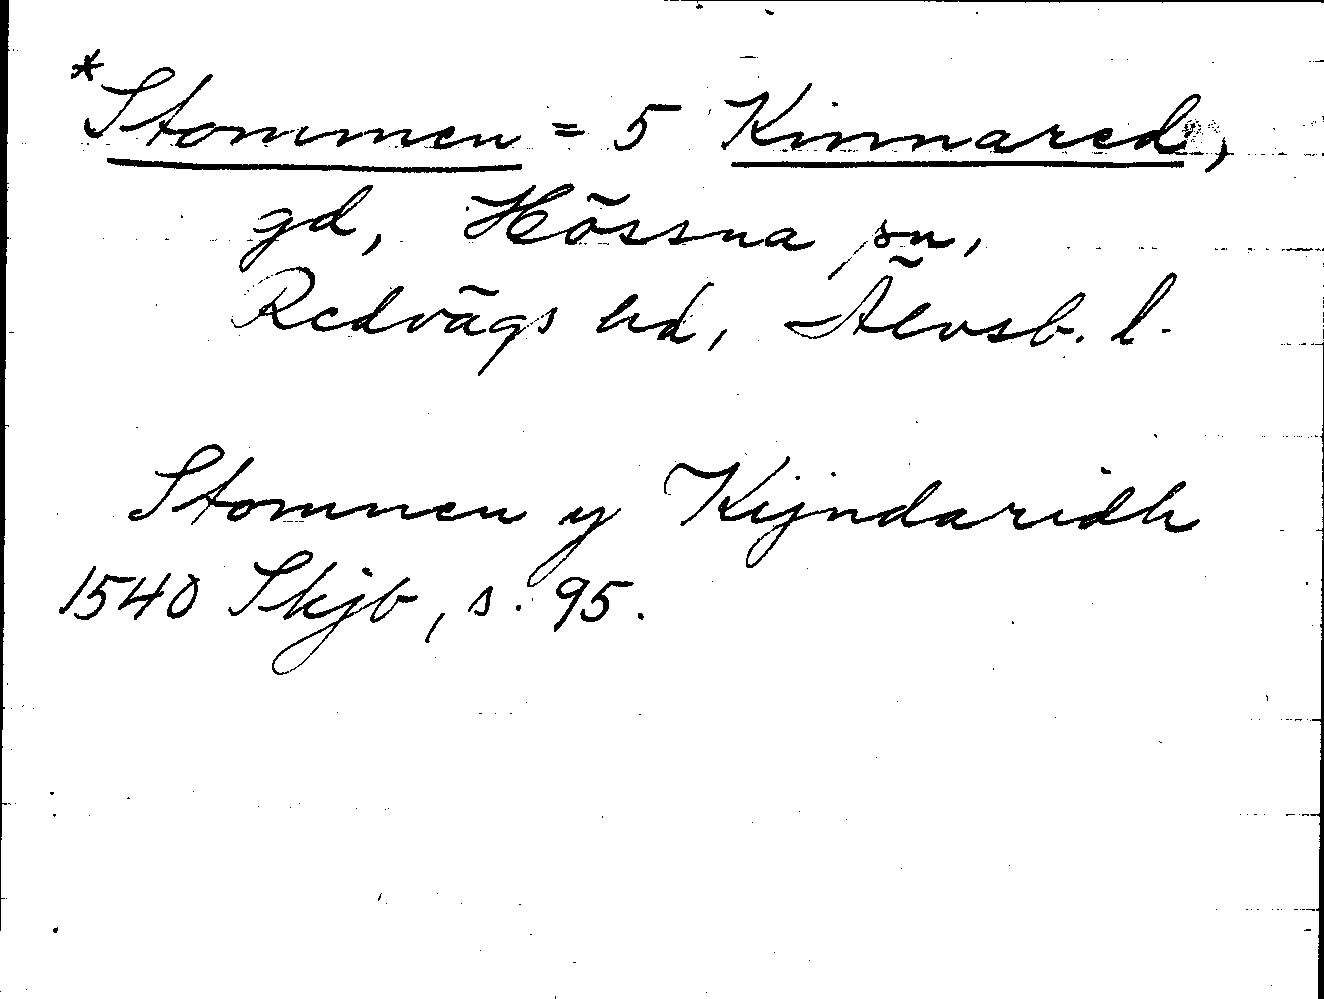 *Stommen = 5 Kinnared,
gd, Hössna sn,
Redvägs hd, Älvsb. l.
Stommen y Kijndaridh
1540 Skjb, s. 95.